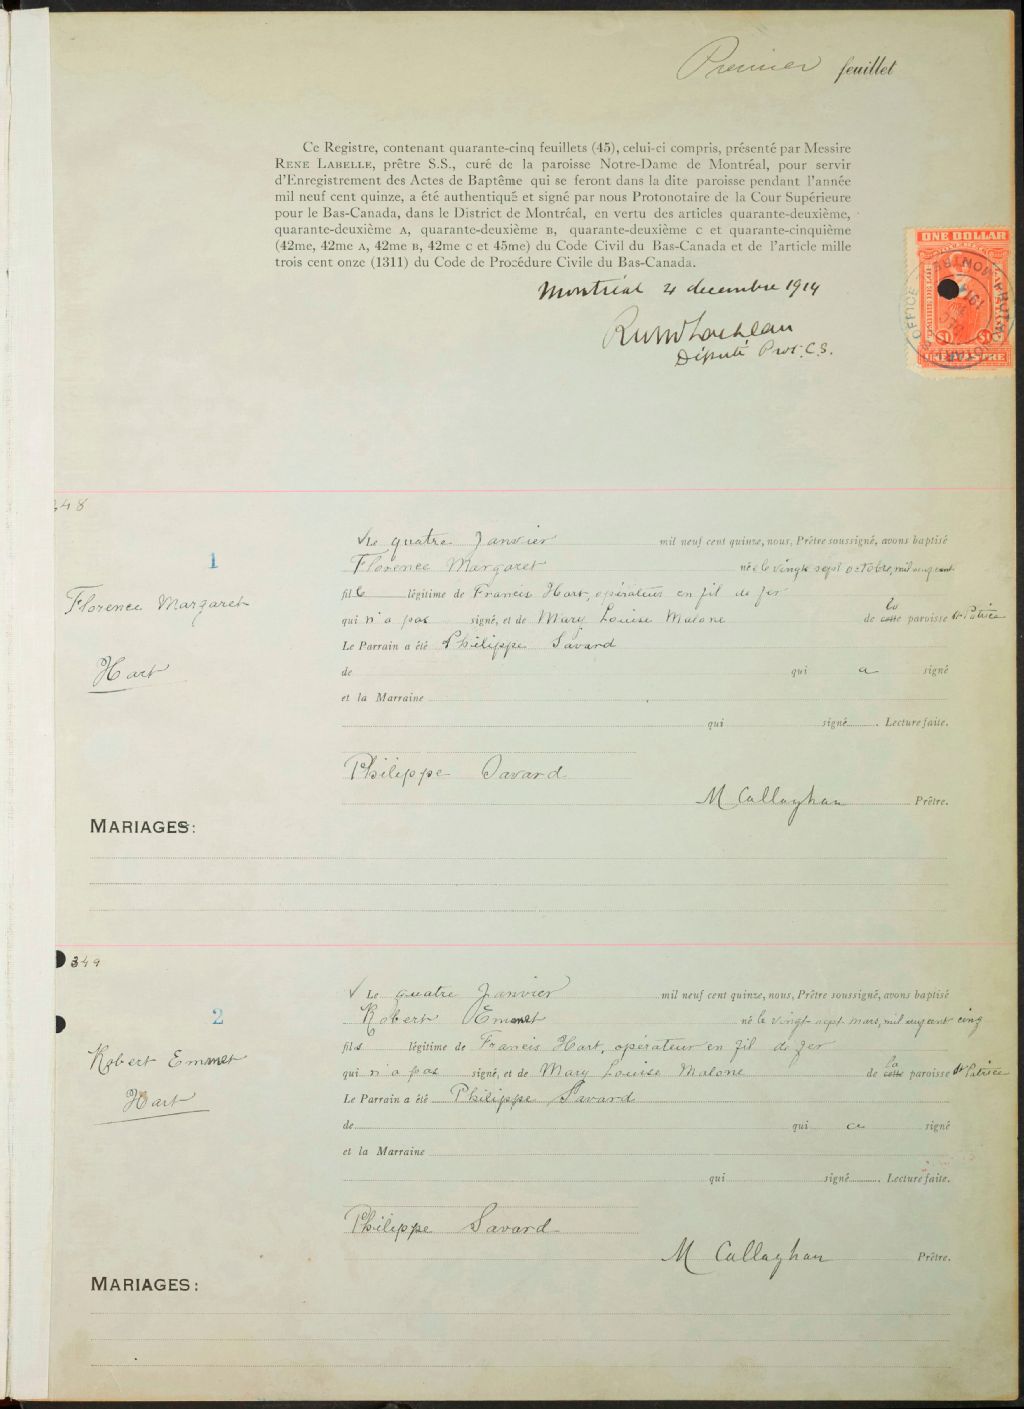 Premier feuillet
Ce Registre, contenant quarante-cinq feuillets (45), celui-ci compris, présenté par Messire
RENE LABELLE, prêtre S.S., curé de la paroisse Notre-Dame de Montréal, pour servir
d'Enregistrement des Actes de Baptême qui se feront dans la dite paroisse pendant l'année
mil neuf cent quinze, a été authentiqué et signé par nous Protonotaire de la Cour Supérieure
pour le Bas-Canada, dans le District de Montréal, en vertu des articles quarante-deuxième,
quarante-deuxième A, quarante-deuxième B, quarante-deuxième C et quarante-cinquième
(42me, 42me A, 42me B, 42me C et 45me) du Code Civil du Bas-Canada et de l'article mille
trois cent onze (1311) du Code de Procédure Civile du Bas-Canada.
Montréal 4 decembre 1914
Député Prot. C.S.
ONE DOLLAR
UNE PIASTRE
348
1
Florence Margaret
Hart
Le quatre Janvier mil neuf cent quinze, nous, Prêtre soussigné, avons baptisé
Florence Margaret née le vingt sept octobre, mil neuf cent
fille légitime de Francis Hart, opérateur en fil de fer
qui n'a pas signé, et de Mary Louise Malone de cette la paroisse St Patrice
Le Parrain a été Philippe Savard
de qui a signé
et la Marraine
qui signé. Lecture faite.
Philippe Savard
M Callaghan Prêtre.
MARIAGES:
349
2
Robert Emmet
Hart
Le quatre Janvier mil neuf cent quinze, nous, Prêtre soussigné, avons baptisé
Robert Emmet né le vingt sept mars, mil neuf cent cinq
fils légitime de Francis Hart, opérateur en fil de fer
qui n'a pas signé, et de Mary Louise Malone de cette la paroisse St Patrice
Le Parrain a été Philippe Savard
de qui a signé
et la Marraine
qui signé. Lecture faite.
Philippe Savard
M Callaghan Prêtre.
MARIAGES: